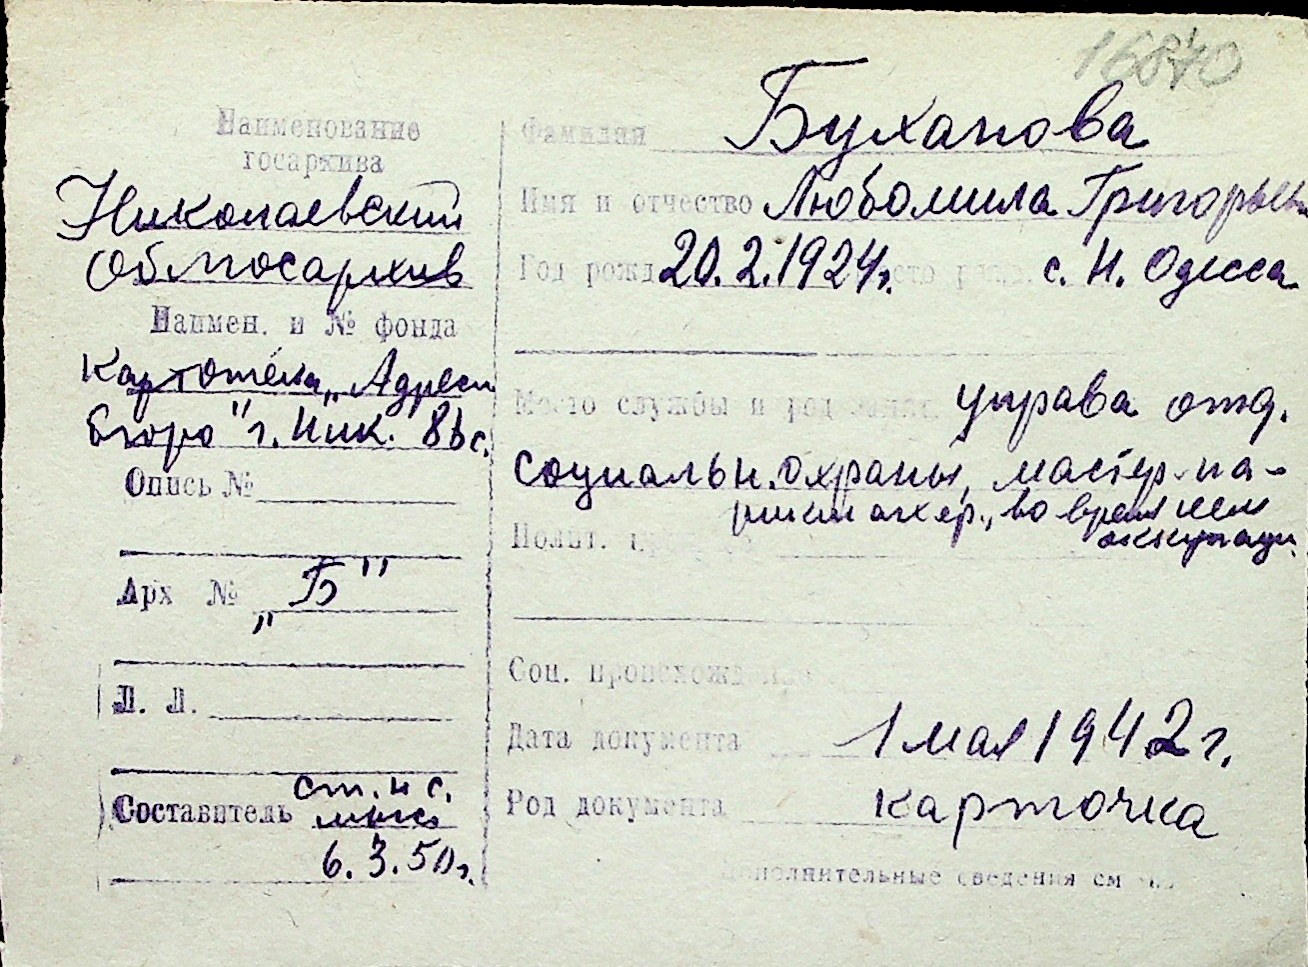 16870
Наименование
госархива
Николаевский
облгосархив
Наимен. и № фонда
Картотека „Адресн
бюро" г. Ник. 8bс.
Опись №
Арх № „Б"
Л. Л.
Составитель ст. н с.
6.3.50г.
Фамилия Буханова
Имя и отчество Любомила Григорьевн
Год рожд 20.2.1924г. место рожд. с. Н. Одесса
Место службы и род занят. управа отд.
социальн. охраны, мастер-па-
рикмахер, во время нем
оккупации
Полит.
Соц. происхождение
Дата документа 1 мая 1942 г.
Род документа карточка
Дополнительные сведения см на